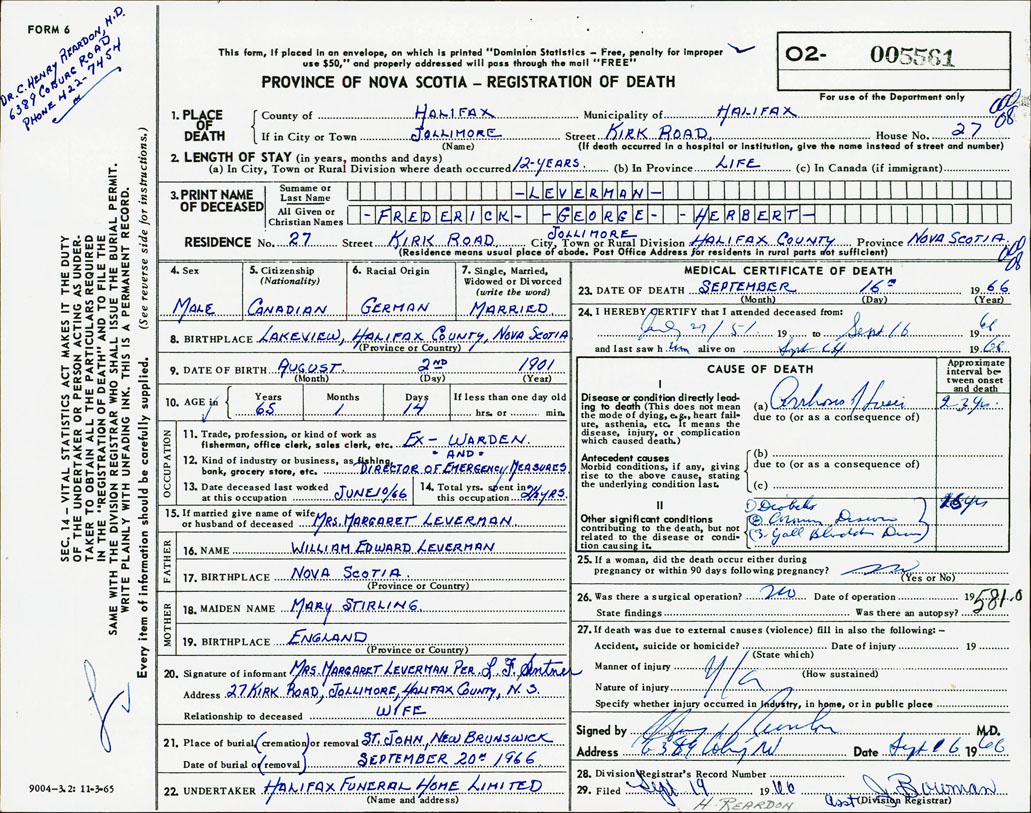 FORM 6
DR. C. HENRY REARDON, M.D.
6389 COBURG ROAD
PHONE 422-7454
This form, if placed in an envelope, on which is printed "Dominion Statistics – Free, penalty for improper
use $50," and properly addressed will pass through the mail "FREE"
PROVINCE OF NOVA SCOTIA – REGISTRATION OF DEATH
02- 005561
For use of the Department only
000
08
SEC. 14 – VITAL STATISTICS ACT MAKES IT THE DUTY
OF THE UNDERTAKER OR PERSON ACTING AS UNDER-
TAKER TO OBTAIN ALL THE PARTICULARS REQUIRED
IN THE "REGISTRATION OF DEATH" AND TO FILE THE
SAME WITH THE DIVISION REGISTRAR WHO SHALL ISSUE THE BURIAL PERMIT.
WRITE PLAINLY WITH UNFADING INK. THIS IS A PERMANENT RECORD.
Every item of information should be carefully supplied. (See reverse side for instructions.)
1. PLACE OF DEATH
County of HALIFAX Municipality of HALIFAX
If in City or Town JOLLIMORE Street KIRK ROAD House No. 27
(Name) (If death occurred in a hospital or institution, give the name instead of street and number)
2. LENGTH OF STAY (in years, months and days)
(a) In City, Town or Rural Division where death occurred 12-YEARS. (b) In Province LIFE (c) In Canada (if immigrant)
3. PRINT NAME OF DECEASED
Surname or Last Name -LEVERMAN-
All Given or Christian Names -FREDERICK- -GEORGE- -HERBERT-
RESIDENCE No. 27 Street KIRK ROAD City, Town or Rural Division JOLLIMORE HALIFAX COUNTY Province NOVA SCOTIA
(Residence means usual place of abode. Post Office Address for residents in rural parts not sufficient)
000
08
4. Sex
MALE
5. Citizenship (Nationality)
CANADIAN
6. Racial Origin
GERMAN
7. Single, Married, Widowed or Divorced (write the word)
MARRIED.
8. BIRTHPLACE LAKEVIEW, HALIFAX COUNTY, NOVA SCOTIA
(Province or Country)
9. DATE OF BIRTH AUGUST. 2ND 1901
(Month) (Day) (Year)
10. AGE in Years 65 Months 1 Days 14 If less than one day old hrs. or min.
OCCUPATION
11. Trade, profession, or kind of work as
fisherman, office clerk, sales clerk, etc. EX-WARDEN.
"AND"
12. Kind of industry or business, as fishing,
bank, grocery store, etc. DIRECTOR OF EMERGENCY MEASURES
13. Date deceased last worked
at this occupation JUNE 10/66
14. Total yrs. spent in
this occupation 2½ YRS.
15. If married give name of wife
or husband of deceased MRS. MARGARET LEVERMAN.
FATHER
16. NAME WILLIAM EDWARD LEVERMAN
17. BIRTHPLACE NOVA SCOTIA.
(Province or Country)
MOTHER
18. MAIDEN NAME MARY STIRLING.
19. BIRTHPLACE ENGLAND
(Province or Country)
20. Signature of informant MRS. MARGARET LEVERMAN PER. L. F. Sentner
Address 27 KIRK ROAD, JOLLIMORE, HALIFAX COUNTY, N.S.
Relationship to deceased WIFE
21. Place of burial (cremation) or removal ST. JOHN, NEW BRUNSWICK
Date of burial (removal) SEPTEMBER 20TH 1966
22. UNDERTAKER HALIFAX FUNERAL HOME LIMITED
(Name and address)
9004-3.2: 11-3-65
MEDICAL CERTIFICATE OF DEATH
23. DATE OF DEATH SEPTEMBER 16TH 1966
(Month) (Day) (Year)
24. I HEREBY CERTIFY that I attended deceased from:
July 27/51 19 to Sept 16 1966
and last saw him alive on Sept 1966
CAUSE OF DEATH
Approximate interval between onset and death
I
Disease or condition directly lead-
ing to death (This does not mean
the mode of dying, e.g., heart fail-
ure, asthenia, etc. It means the
disease, injury, or complication
which caused death.)
(a) Cirrhosis Liver 2-3 yrs
due to (or as a consequence of)
Antecedent causes
Morbid conditions, if any, giving
rise to the above cause, stating
the underlying condition last.
(b)
due to (or as a consequence of)
(c)
II
Other significant conditions
contributing to the death, but not
related to the disease or condi-
tion causing it.
1) Diabetes yrs
2) Coronary Disease
(3. Gall Bladder Disease
25. If a woman, did the death occur either during
pregnancy or within 90 days following pregnancy?
(Yes or No)
26. Was there a surgical operation? no Date of operation 19
581.0
State findings Was there an autopsy?
27. If death was due to external causes (violence) fill in also the following: –
Accident, suicide or homicide? Date of injury 19
(State which)
Manner of injury
(How sustained)
Nature of injury
N/A
Specify whether injury occurred in industry, in home, or in public place
Signed by M.D.
Address 6389 Coburg Rd Date Sept 16 1966
28. Division Registrar's Record Number
29. Filed Sept 19 1966 J. Bowman
Asst (Division Registrar)
H. REARDON